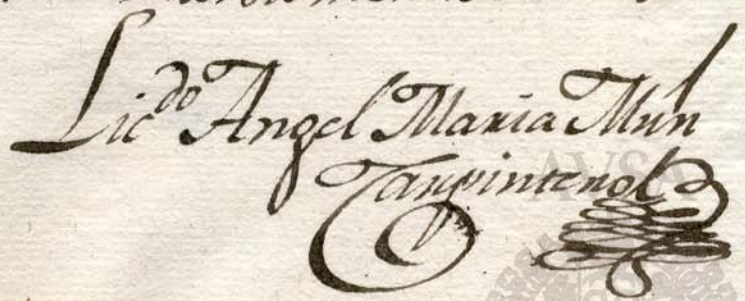 Lic.do Angel Maria Mun
Carpintero